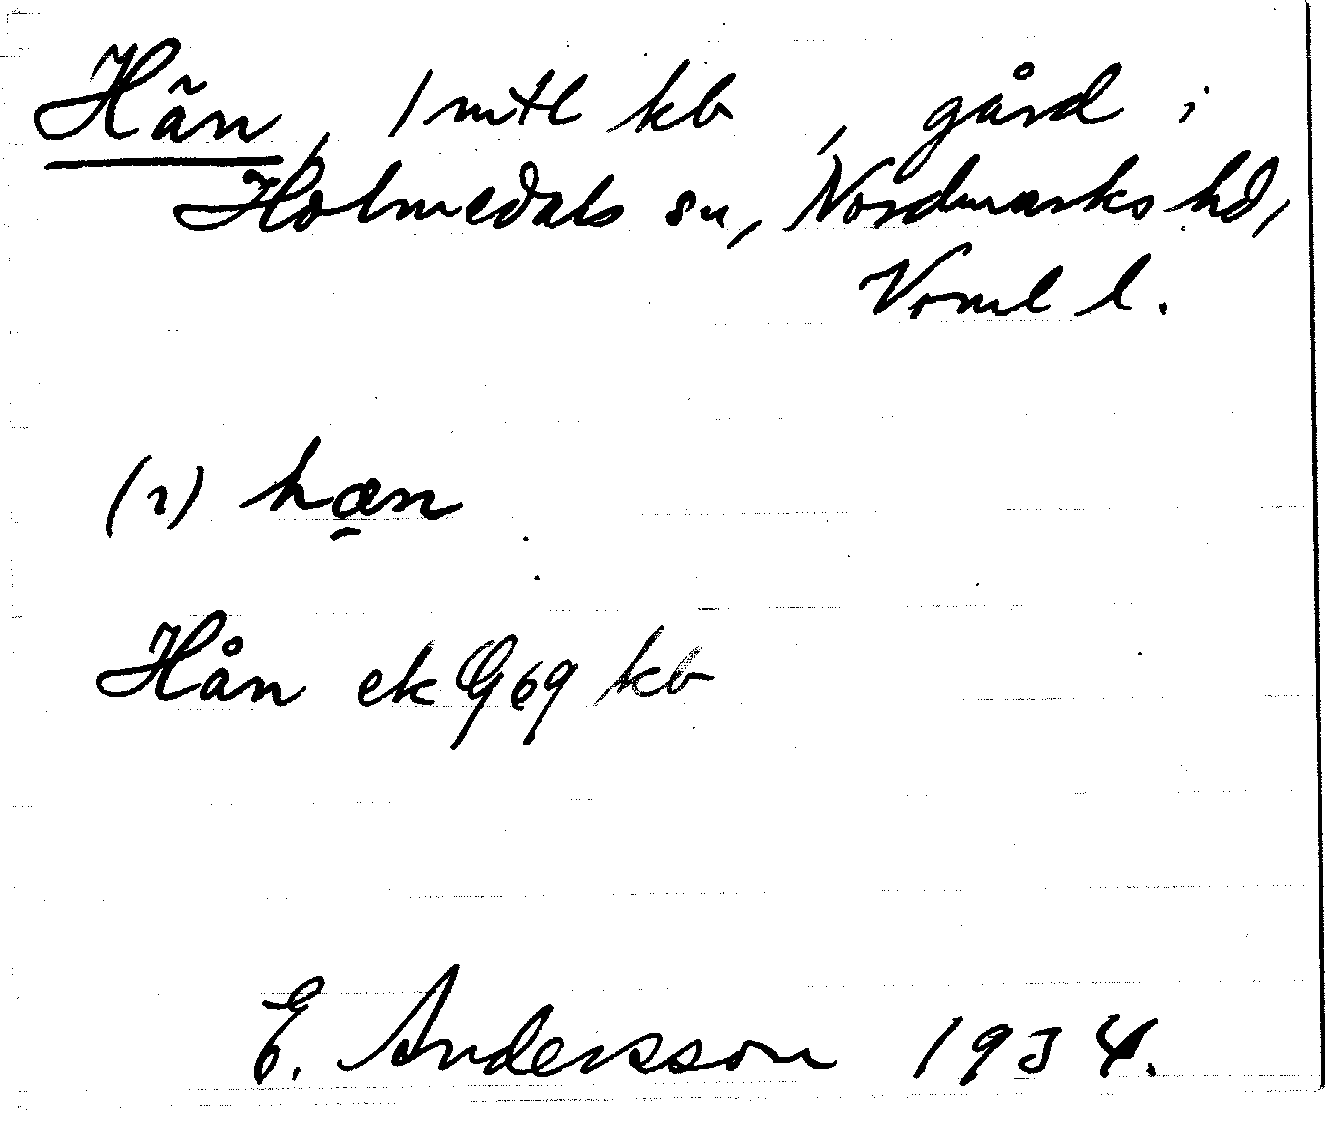 Hän, 1 mtl kb, gård i
Holmedals sn, Nordmarks hd,
Vrml l.
(1) hæ̠n
Hån ek G69 kb
E. Andersson 1934.